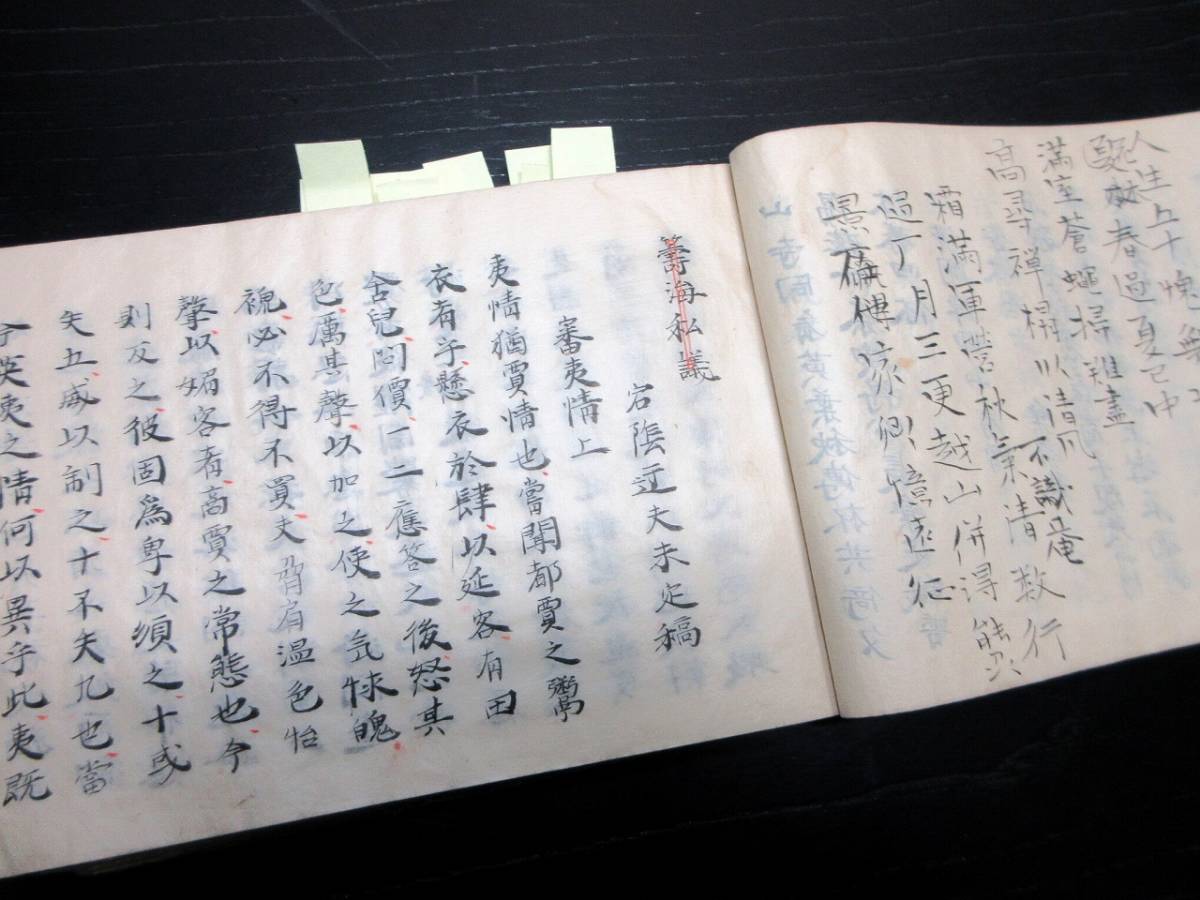 人生五十愧無
春過夏已中
滿室蒼蠅掃難盡
高尋禪榻以清风
不識庵
霜滿軍營秋氣清數行
過丁月三更越山併得能
景家郷憶遠征
籌海私議
宕陰迂夫未定稿
審夷情上
夷情猶賈情也當聞都賈之鬻
衣有乎懸衣於肆以延客有田
舍兒問價一二應答之後怒其
色厲其聲以加之使之気怵魄
褫必不得不買夫脅肩温色怡
聲以媚客者商賈之常態也今
則反之彼固爲専以須之十或
失五威以制之十不失九也當
今英夷之情何以異乎此夷既